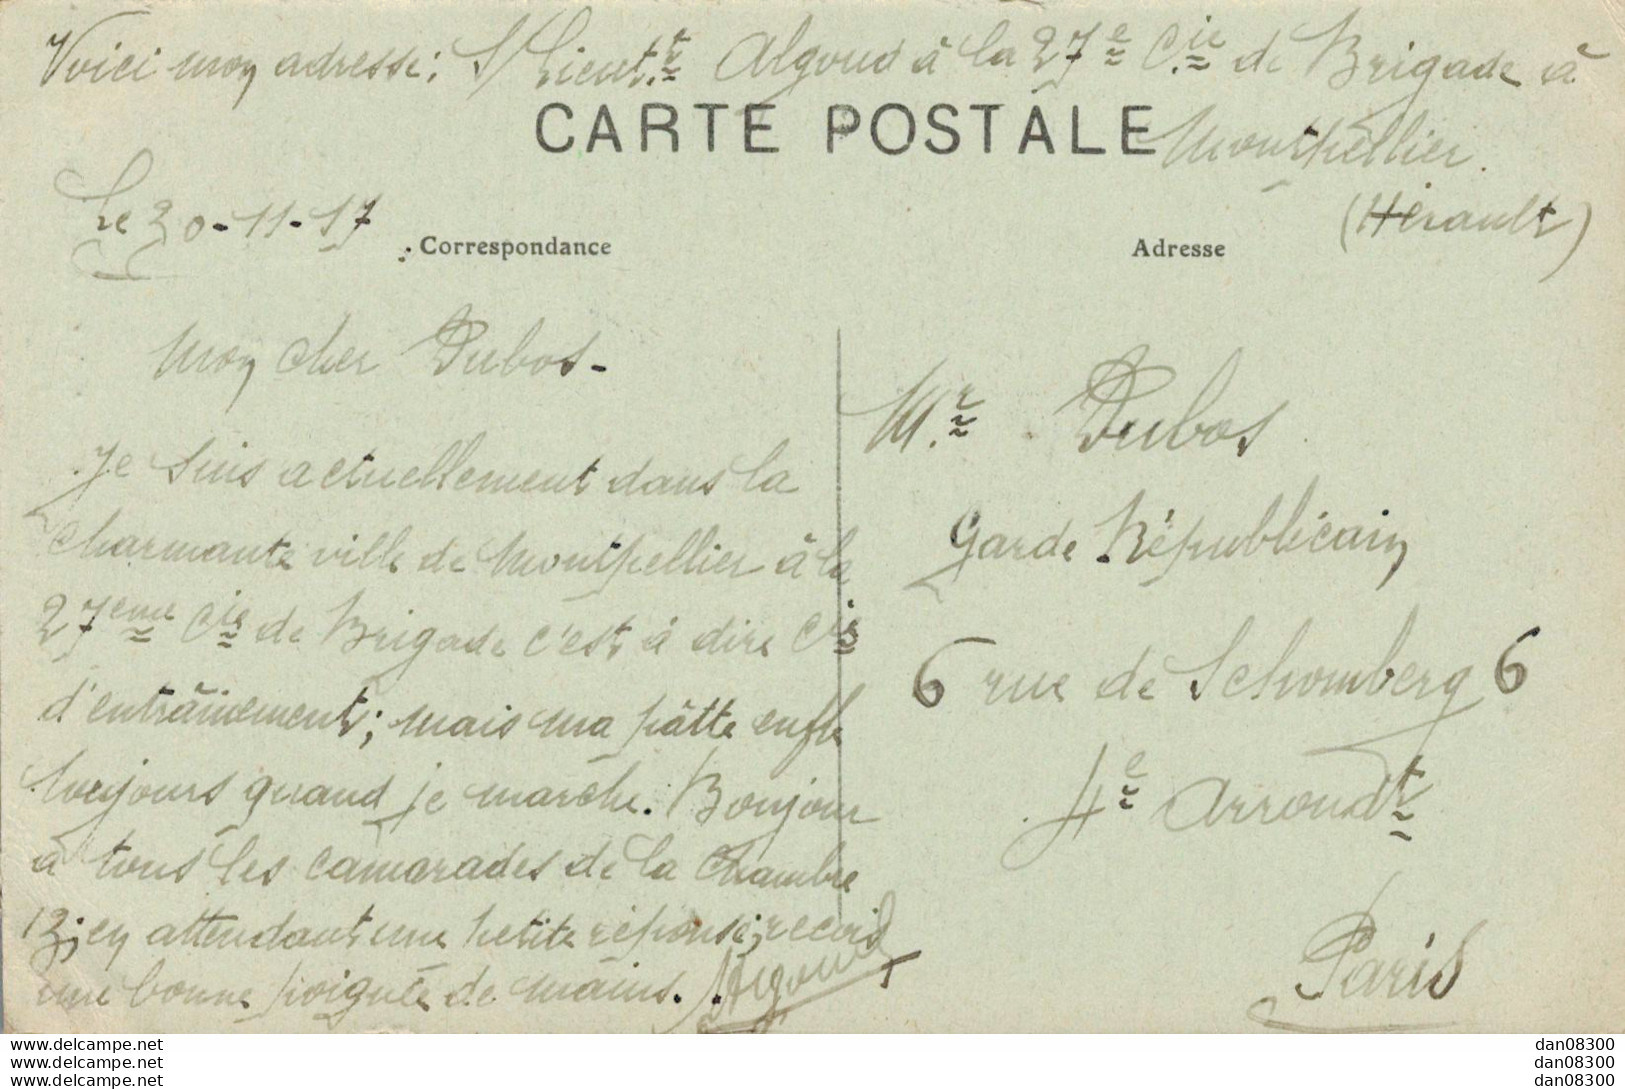 Voici mon adresse: S/Lieut.t Algoud à la 27e Cie de Brigade à
Montpellier.
(Hérault)
CARTE POSTALE
Le 20-11-17
Correspondance
Adresse
Mon cher Dubos-
Je suis actuellement dans la
charmante ville de Montpellier à la
27eme Cie de Brigade c'est à dire Cie
d'entraînement; mais ma pâtte enfle
toujours quand je marche. Bonjour
à tous les camarades de la Chambre
13; en attendant une petite réponse; recois
une bonne poignée de mains. Algoud
Mr Dubos
Garde Républicain
6 rue de Schomberg 6
4e Arrondt
Paris
www.delcampe.net
www.delcampe.net
www.delcampe.net
dan08300
dan08300
dan08300